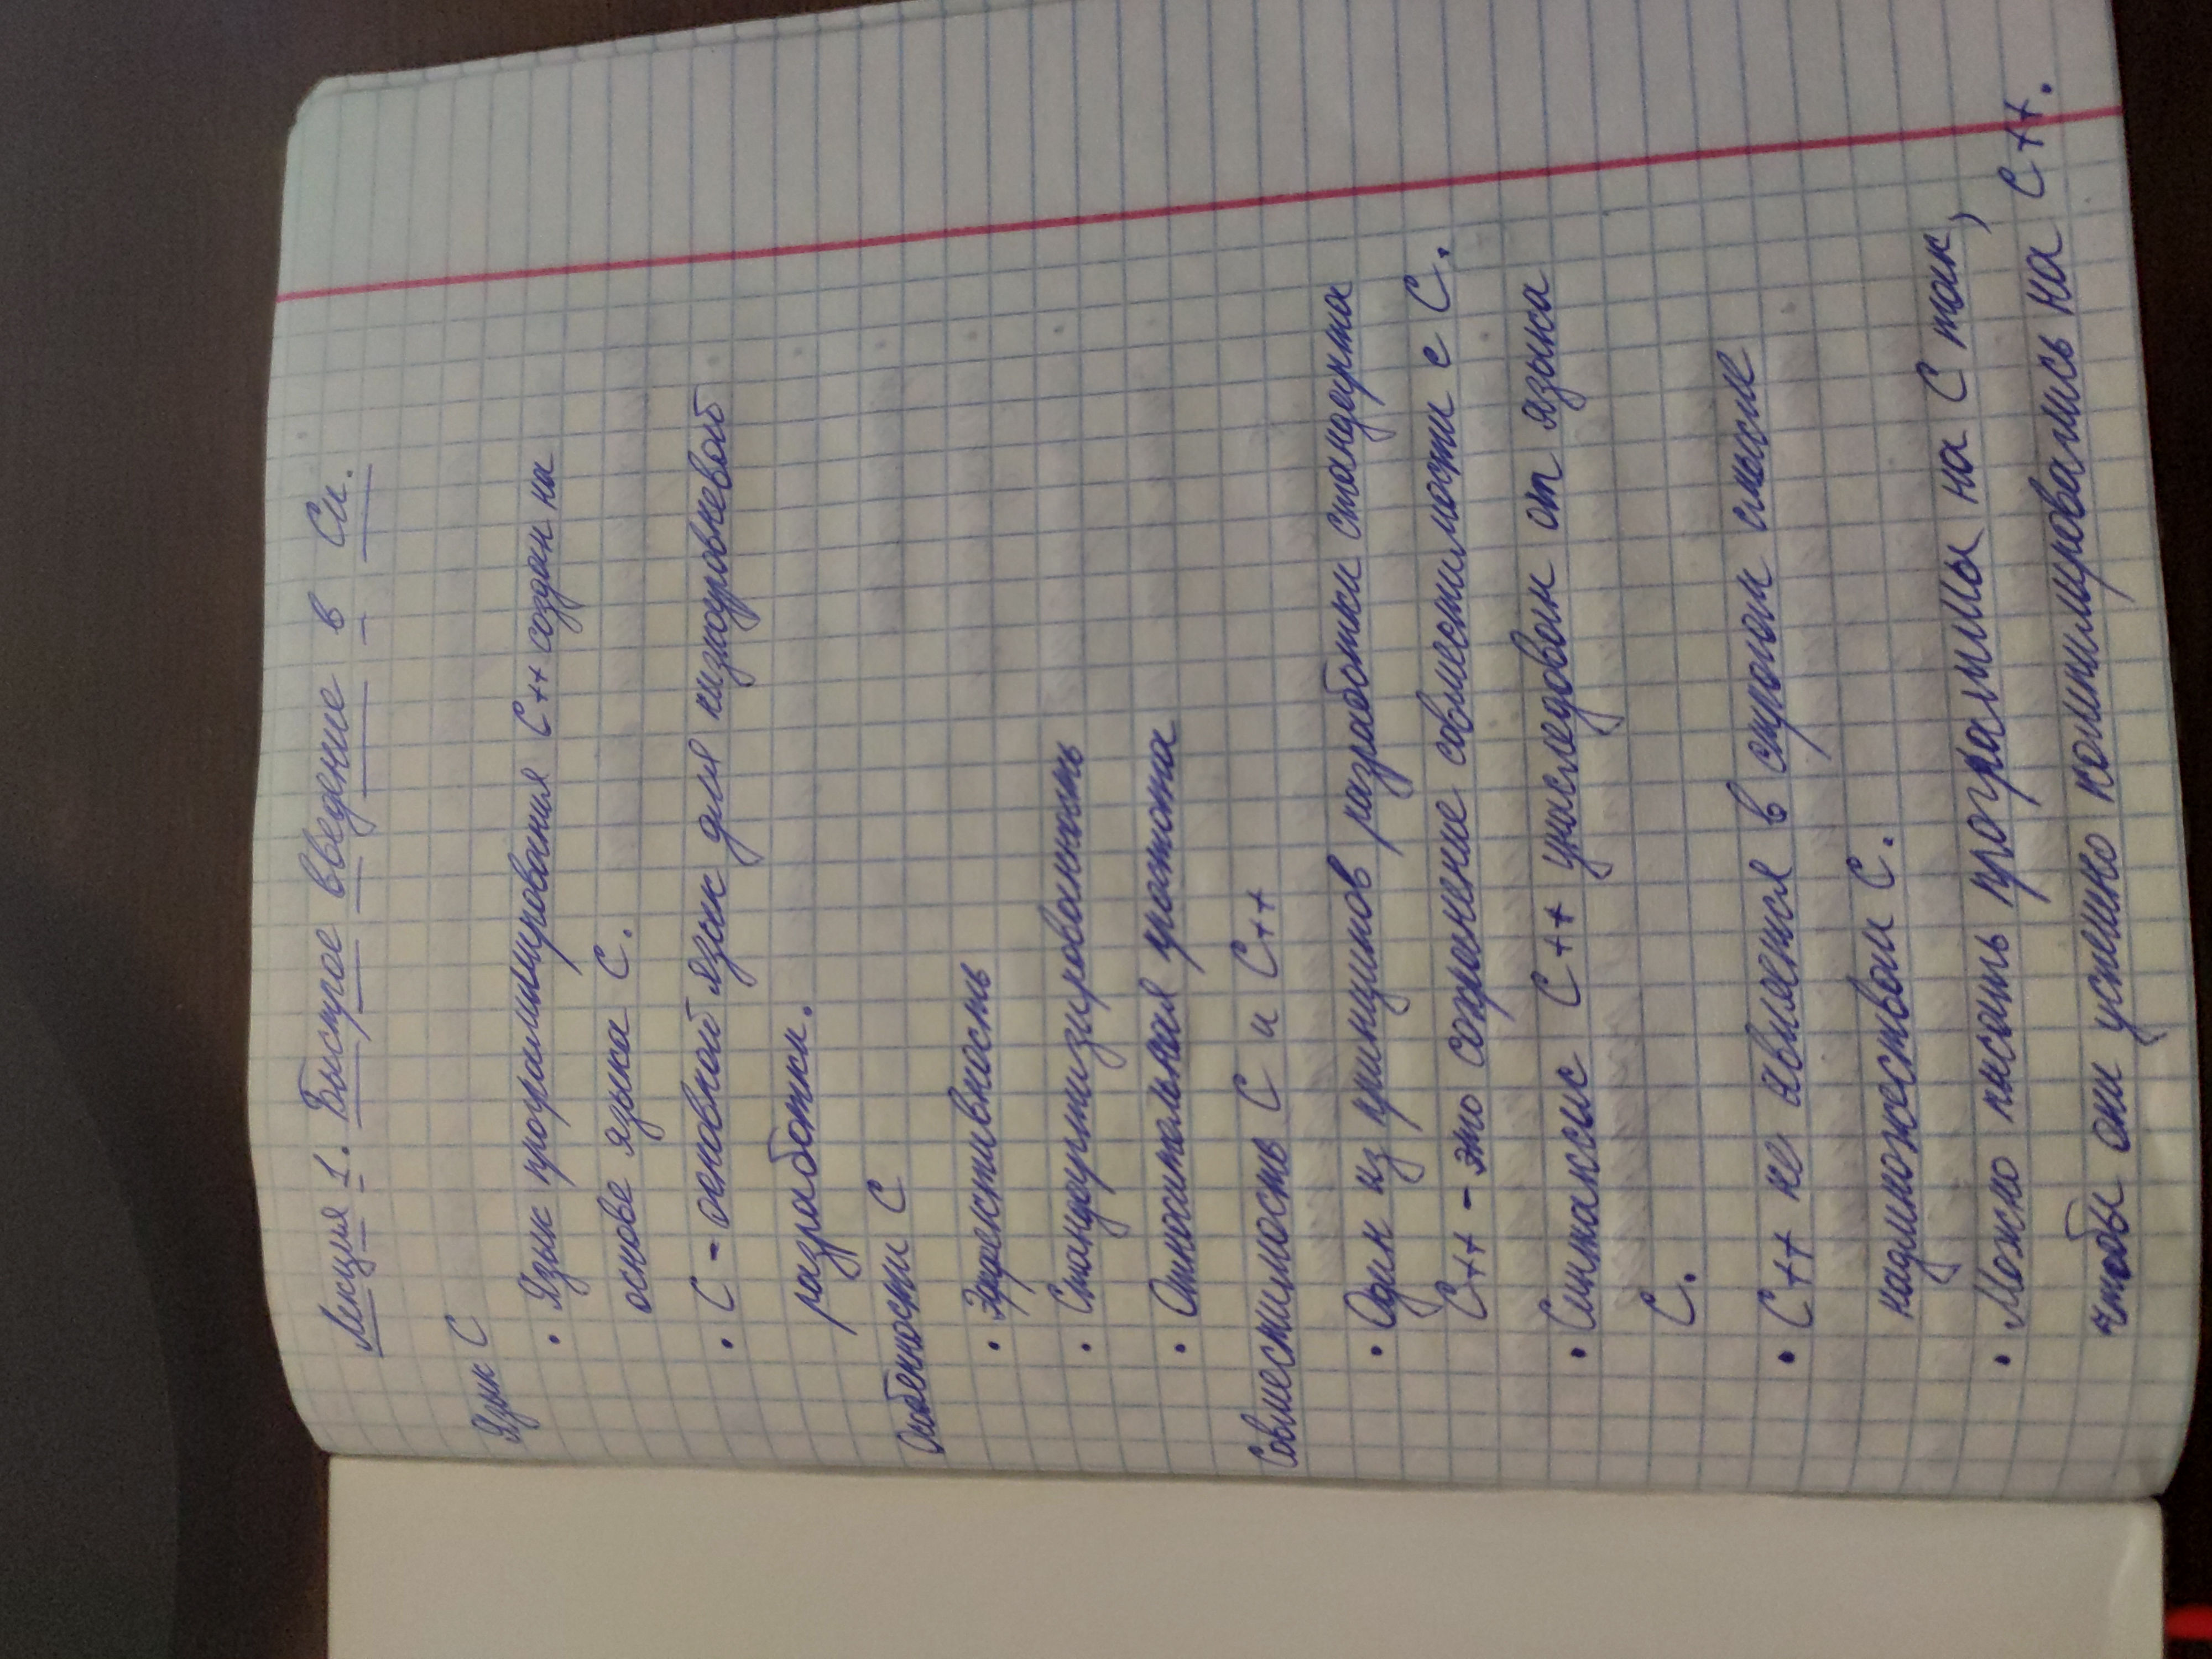 Лекция 1. Быстрое введение в Си.
Язык С
• Язык программирования С++ создан на
основе языка С.
• С - основной язык для низкоуровневой
разработки.
Особенности С
• Эффективность
• Стандартизированность
• Относительная простота
Совместимость С и С++
• Один из принципов разработки стандарта
С++ - это сохранение совместимости с С.
• Синтаксис С++ унаследован от языка
С.
• С++ не является в строгом смысле
надмножеством С.
• Можно писать программы на С так,
чтобы они успешно компилировались на С++.